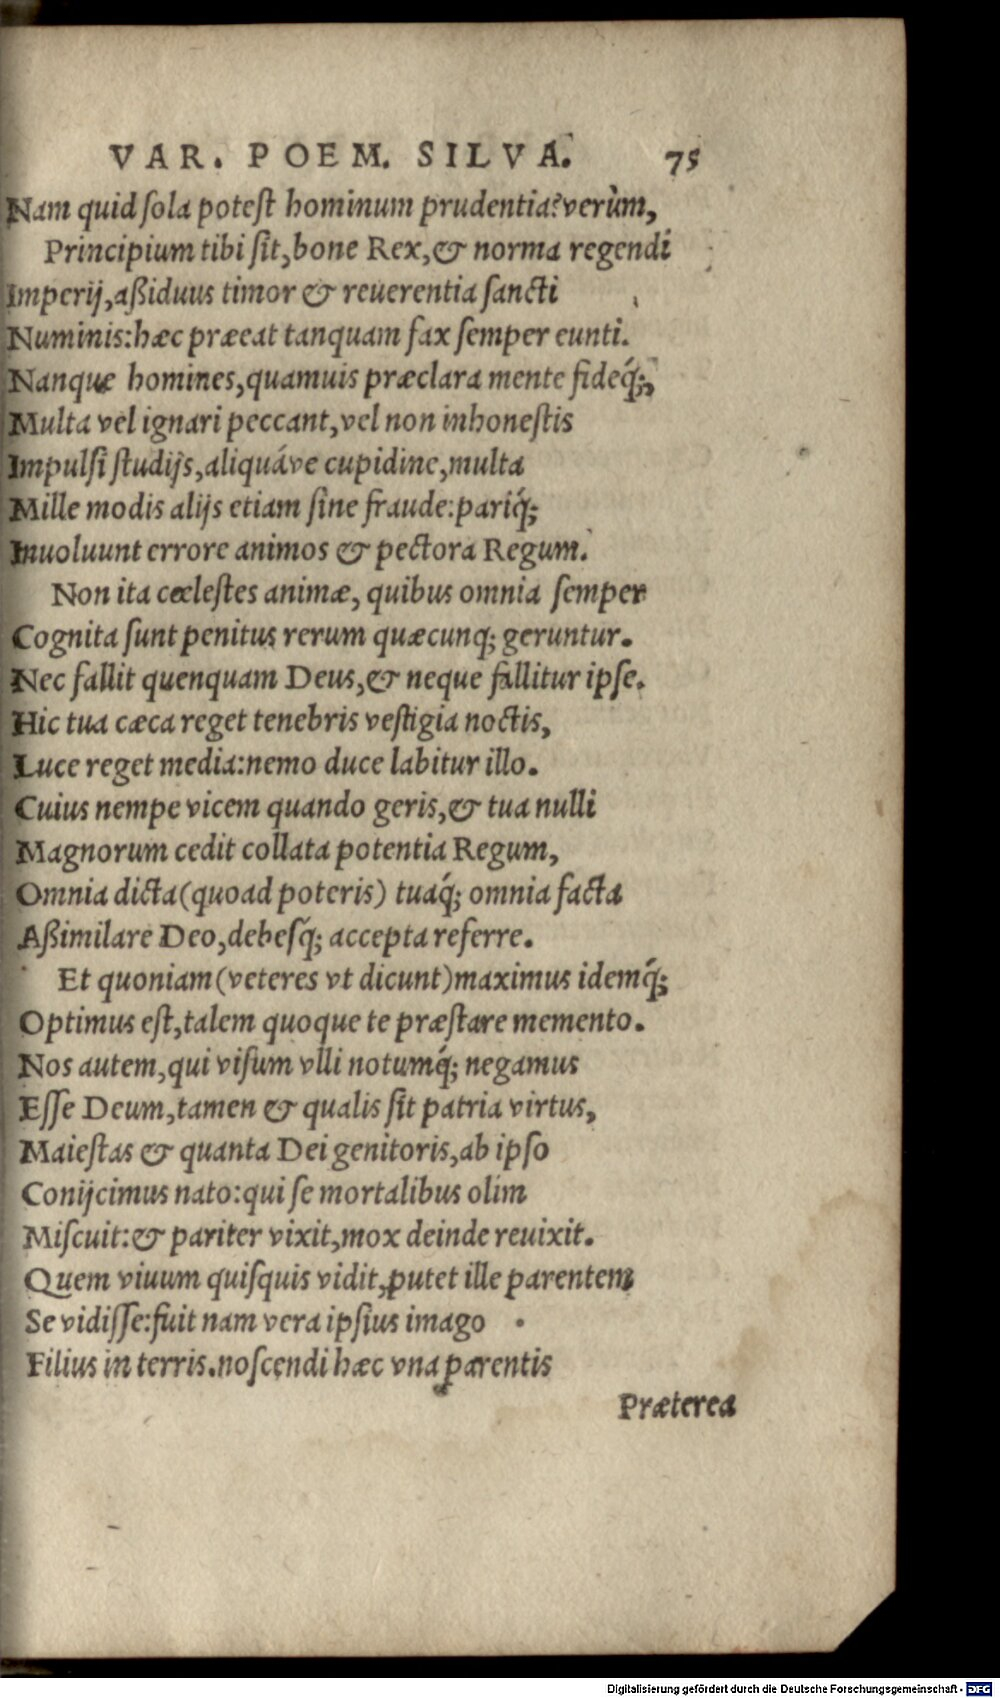 VAR. POEM. SILVA. 75
Nam quid ſola poteſt hominum prudentia? verùm,
Principium tibi ſit, bone Rex, & norma regendi
Imperij, aßiduus timor & reuerentia ſancti
Numinis: hæc præeat tanquam fax ſemper eunti.
Nanque homines, quamuis præclara mente fideq́;,
Multa vel ignari peccant, vel non inhoneſtis
Impulſi ſtudijs, aliquáve cupidine, multa
Mille modis alijs etiam ſine fraude: pariq́;
Inuoluunt errore animos & pectora Regum.
Non ita cœleſtes animæ, quibus omnia ſemper
Cognita ſunt penitus rerum quæcunq; geruntur.
Nec fallit quenquam Deus, & neque fallitur ipſe.
Hic tua cæca reget tenebris veſtigia noctis,
Luce reget media: nemo duce labitur illo.
Cuius nempe vicem quando geris, & tua nulli
Magnorum cedit collata potentia Regum,
Omnia dicta (quoad poteris) tuaq́; omnia facta
Aßimilare Deo, debeſq́; accepta referre.
Et quoniam (veteres vt dicunt) maximus idemq́;
Optimus eſt, talem quoque te præſtare memento.
Nos autem, qui viſum vlli notumq́; negamus
Eſſe Deum, tamen & qualis ſit patria virtus,
Maieſtas & quanta Dei genitoris, ab ipſo
Conijcimus nato: qui ſe mortalibus olim
Miſcuit: & pariter vixit, mox deinde reuixit.
Quem viuum quiſquis vidit, putet ille parentem
Se vidiſſe: fuit nam vera ipſius imago
Filius in terris. noſcendi hæc vna parentis
Præterea
Digitalisierung gefördert durch die Deutsche Forschungsgemeinschaft - DFG